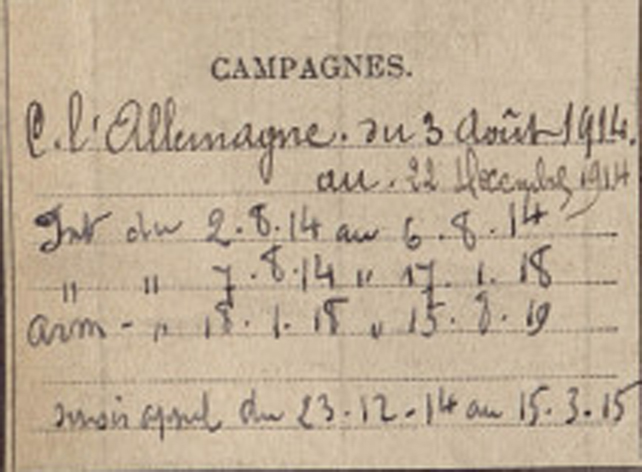 CAMPAGNES.
C. l'Allemagne. du 3 Août 1914.
au. 22 Décembre 1914
Int du 2.8.14 au 6.8.14
" " 7.8.14 " 17.1.18
arm - " 18.1.18 " 15.8.19
du 23.12.14 au 15.3.15